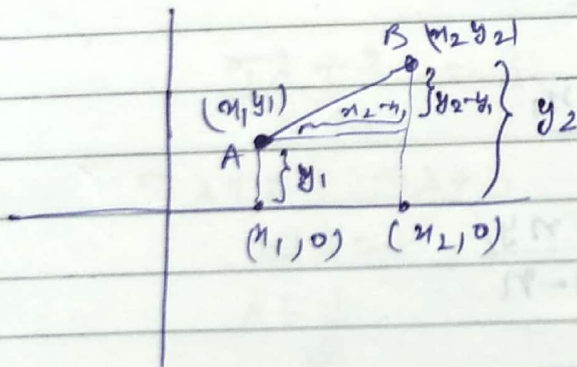 B (x2 y2)
(x1 y1)
x2-x1
}y2-y1
} y2
A
}y1
(x1,0) (x2,0)